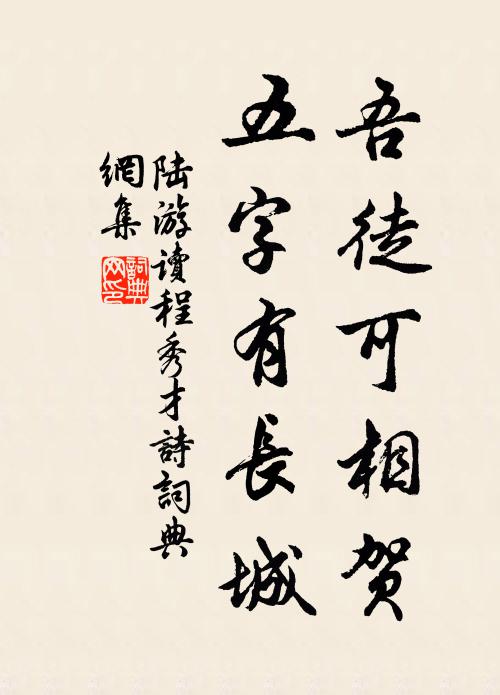 吾徒可相賀
五字有長城
陸游讀程秀才詩詞典
網集
詞典網印